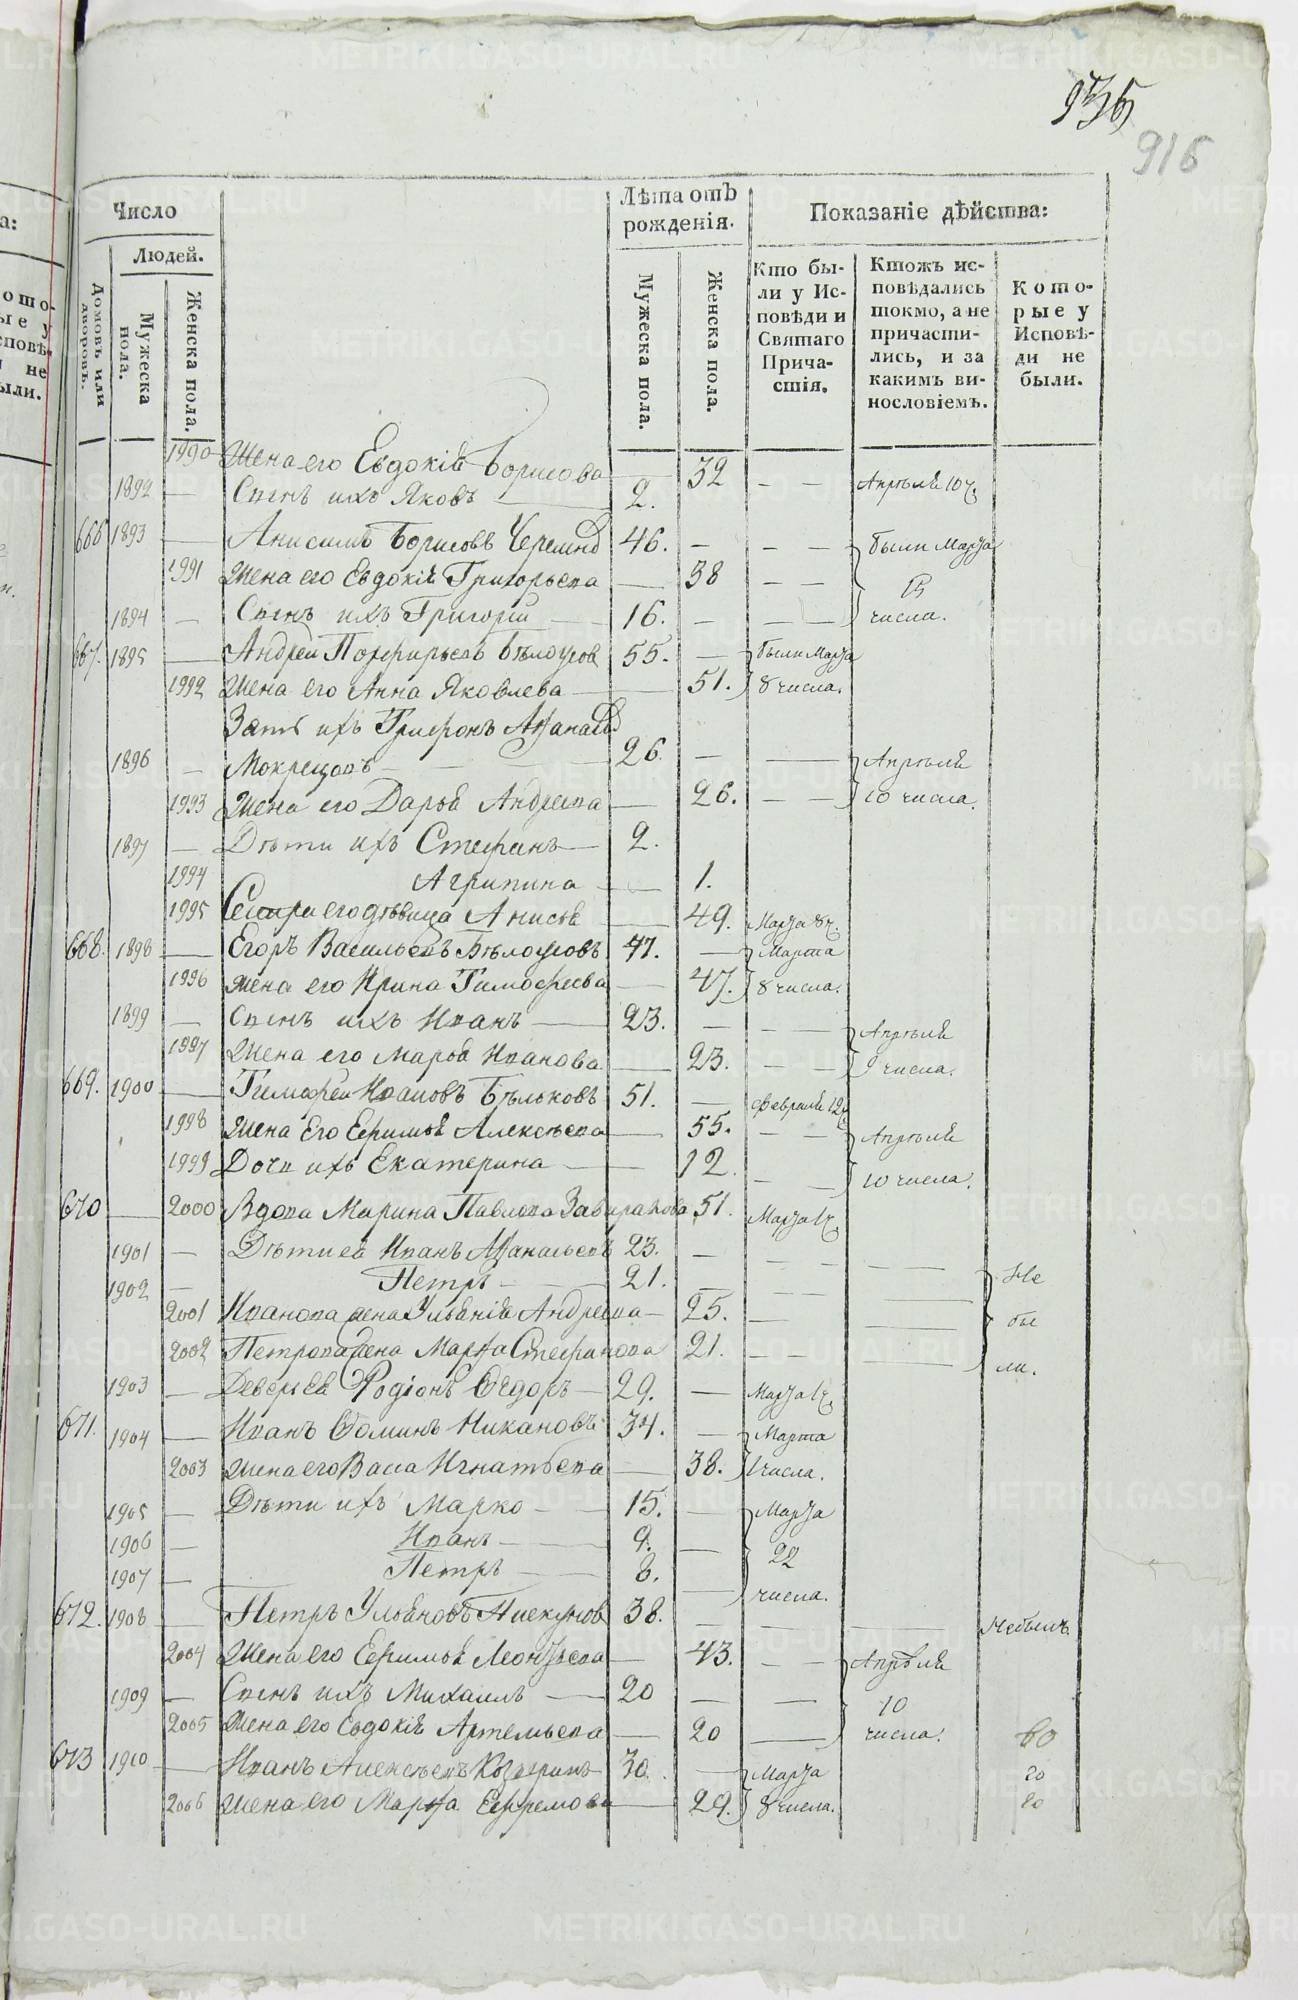 935
916
Число
Людей.
Домовъ или дворовъ.
Мужеска пола.
Женска пола.
Лѣта отъ рожденія.
Мужеска пола.
Женска пола.
Показаніе дѣйства:
Кто бы-
ли у Ис-
повѣди и
Святаго
Прича-
стія.
Ктожъ ис-
повѣдались
токмо, а не
причасти-
лись, и за
какимъ ви-
нословіемъ.
Кото-
рые у
Исповѣ-
ди не
были.
1990 Жена его Евдокія Борисова — 32
1892 — Сынъ ихъ Яковъ — 2. — — Апрѣля 10 ч.
666 1893 — Анисимъ Борисовъ 46. — — — были Марта
1991 Жена его Евдокія Григорьева — 38 — — 15
1894 — Сынъ ихъ Григорій — 16. — — — числа.
667. 1895 — Андрей Порфирьевъ Бѣлоусов 55. — были Марта
1992 Жена его Анна Яковлева — 51. 8 числа.
Зять ихъ Трифонъ Афанась
1896 — Мокрецовъ — 26. — — Апрѣля
1993 Жена его Дарья Андреева — 26. — — 10 числа.
1897 — Дѣти ихъ Стефанъ — 2.
1994 Агрипина — 1.
1995 Сестра его дѣвица Анисья — 49. Марта 8 ч.
668. 1898 — Егоръ Васильевъ Бѣлоусовъ 47. — Марта
1996 Жена его Ирина Тимофеева — 47. 8 числа.
1899 — Сынъ ихъ Иванъ — 23. — — — Апрѣля
1997 Жена его Марья Иванова — 23. — — 9 числа.
669. 1900 — Тимофей Ивановъ Бѣльковъ 51. — Февраля 12 ч.
1998 Жена Его Ефимья Алексѣева — 55. — — Апрѣля
1999 Дочь ихъ Екатерина — 12. — — 10 числа.
670 — 2000 Вдова Марина Павлова 51. Марта 1 ч.
1901 — Дѣти ея Иванъ Афанасьевъ 23. — — — — — Не
1902 — Петръ — 21. —
2001 Иванова жена Ульянія Андреева — 25. — — — бы
2002 Петрова жена Марфа Стефанова 21. — — — ли.
1903 — Деверья Родіонъ Ѳедоръ — 29. — Марта 1 ч.
671. 1904 — Иванъ Ѳоминъ Никановъ 34. — Марта
2003 Жена его Васа Игнатьева — 38. 1 числа.
1905 — Дѣти ихъ Марко — 15. — Марта
1906 — Иванъ — 9. — 22
1907 — Петръ — 8. — числа.
672. 1908 — Петръ Ульяновъ 38. — — — Небылъ
2004 Жена его Ефимья Леонтьева — 43. — — Апрѣля
1909 — Сынъ ихъ Михаилъ — 20 — — 10
2005 Жена его Евдокія Артемьева — 20 — числа.
60
673 1910 — Иванъ Алексѣевъ 30. — Марта
20
2006 Жена его Марфа Ефремова — 29. 8 числа.
20